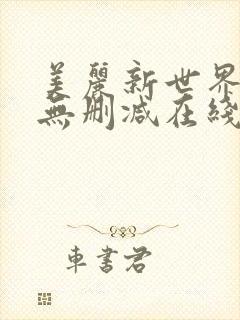 美麗新世界
無刪減在綫
車書君